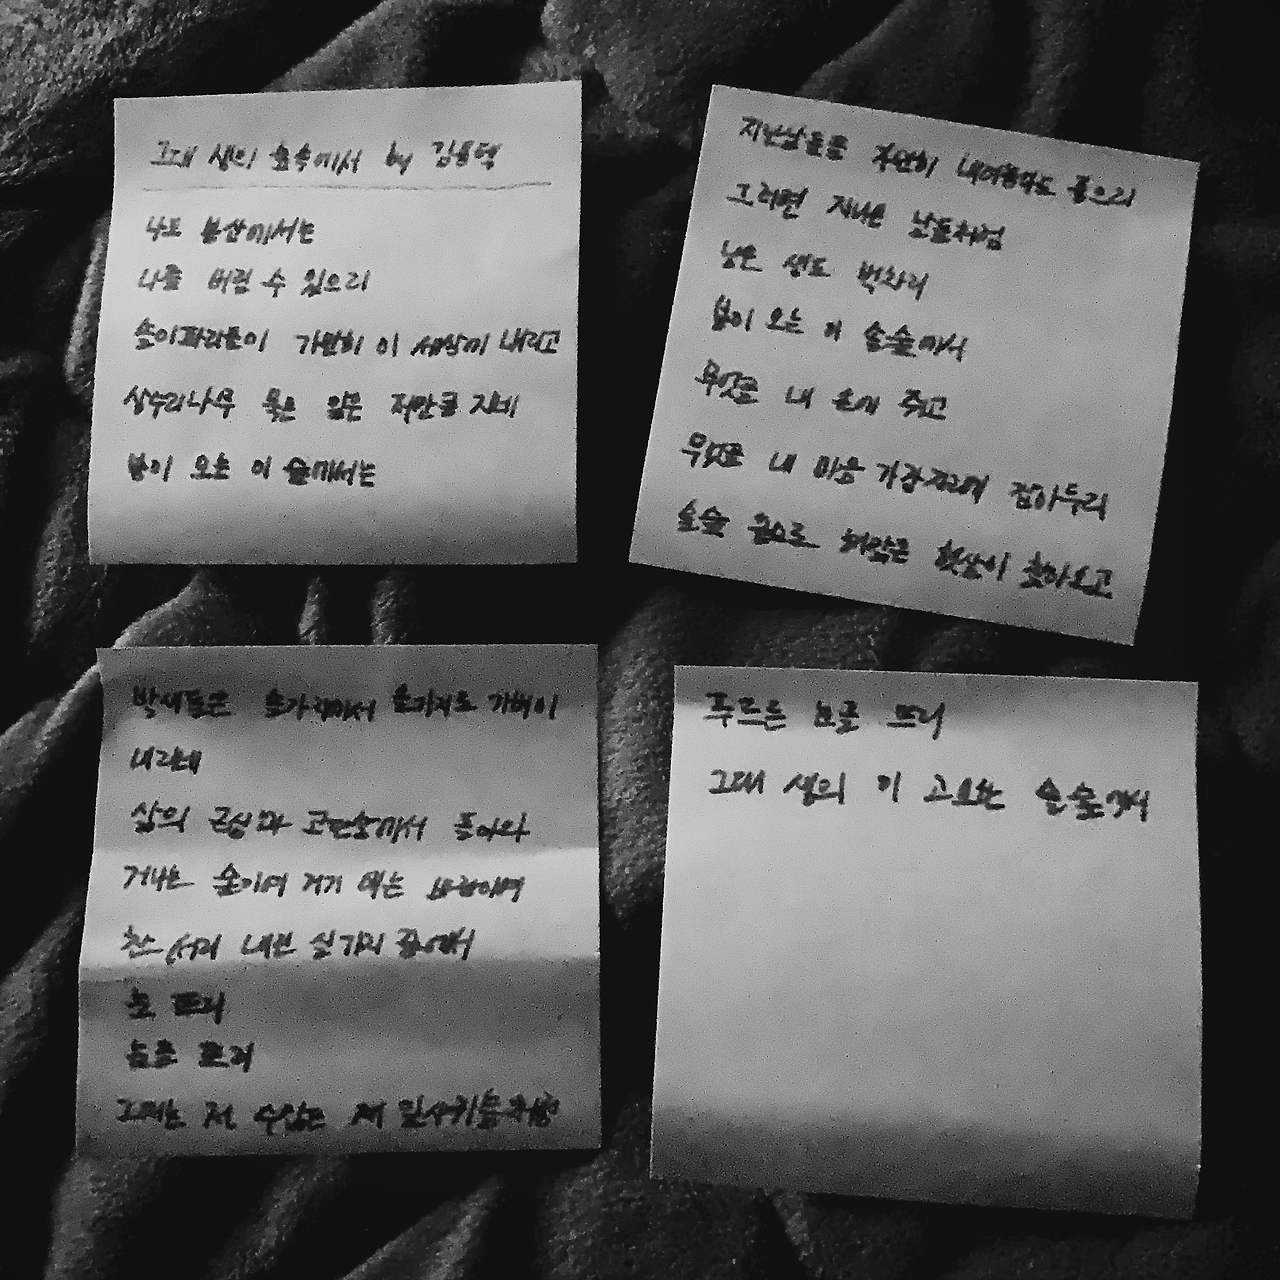 그대 생의 솔숲에서 by 김용택
나도 봄산에서는
나를 버릴 수 있으리
솔이파리들이 가만히 이 세상에 내리고
상수리나무 묵은 잎은 저만큼 지네
봄이 오는 이 숲에서는
지난날들을 가만히 내려놓아도 좋으리
그러면 지나온 날들처럼
남은 생도 벅차리
봄이 오는 이 솔숲에서
무엇을 내 손에 쥐고
무엇을 내 마음 가장자리에 잡아두리
솔숲 끝으로 해맑은 햇살이 찾아오고
박새들은 솔가지에서 솔가지로 가벼이
내리네
삶의 근심과 고단함에서 돌아와
거니는 숲이여 거기 이는 바람이여
찬 서리 내린 실가지 끝에서
눈 뜨리
눈을 뜨리
그대는 저 수많은 새 잎사귀들처럼
푸르른 눈을 뜨리
그대 생의 이 고요한 솔숲에서